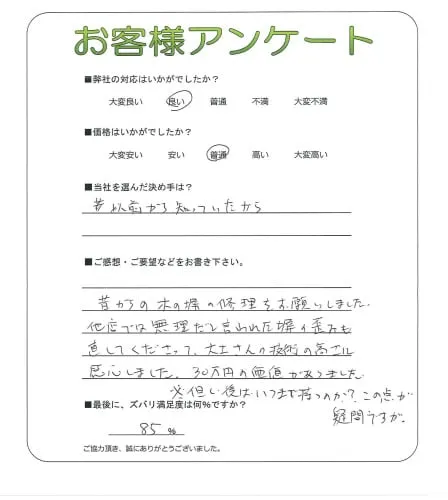 お客様アンケート
■弊社の対応はいかがでしたか？
大変良い 良い 普通 不満 大変不満
■価格はいかがでしたか？
大変安い 安い 普通 高い 大変高い
■当社を選んだ決め手は？
昔以前から知っていたから
■ご感想・ご要望などをお書き下さい。
昔からの木の塀の修理をお願いしました.
他店では無理だと言われた塀の歪みも
直してくださって、大工さんの技術の高さに
感心しました. 30万円の価値がありました
※但し後はいつまで持つのか？この点が
疑問ですが.
■最後に、ズバリ満足度は何%ですか？
85 %
ご協力頂き、誠にありがとうございました。